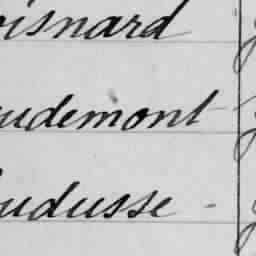 oisnard
udemont
udusse -